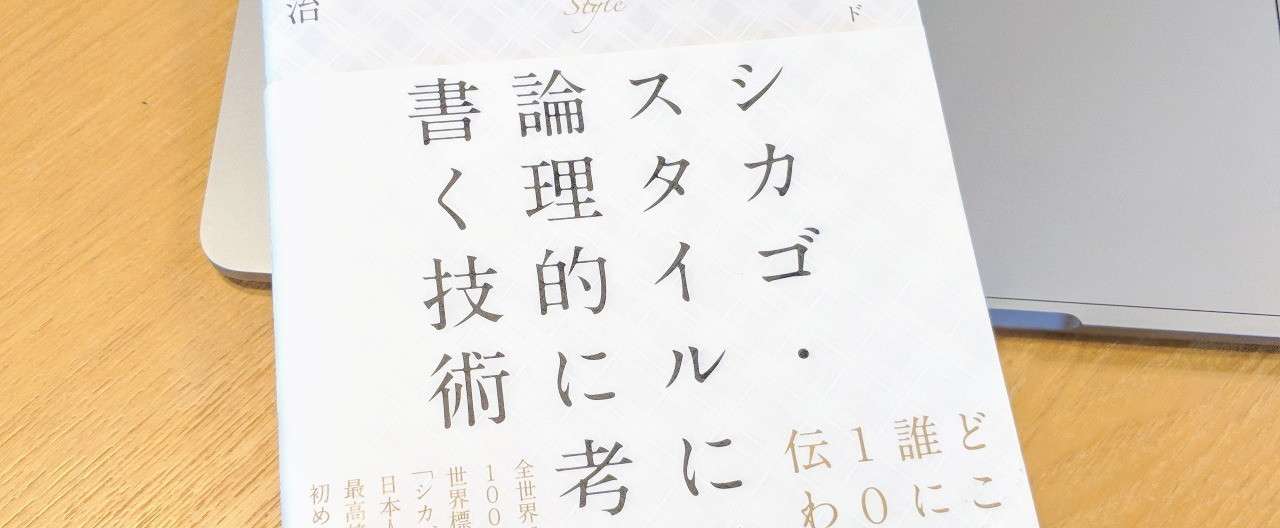 治
Style
ド
シカゴ・
スタイルに
論理的に考
書く技術
どこ
誰に
10
伝わ
全世界
100
世界標
「シカ
日本人
最高
初め